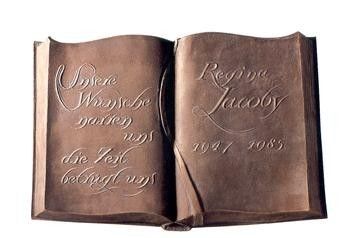 Unsere
Wünsche
narren
uns
die Zeit
betrügt uns
Regina
Jacoby
1947 1985